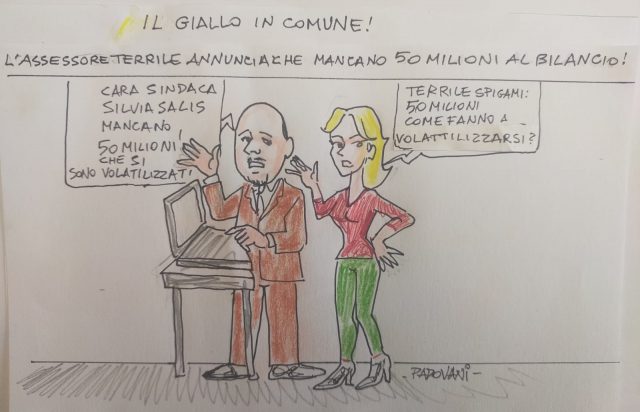 IL GIALLO IN COMUNE!
L'ASSESSORE TERRILE ANNUNCIA CHE MANCANO 50 MILIONI AL BILANCIO!
CARA SINDACA
SILVIA SALIS
MANCANO
50 MILIONI,
CHE SI
SONO VOLATILIZZATI
TERRILE SPIGAMI:
50 MILIONI
COME FANNO A
VOLATTILIZZARSI?
- PADOVANI -